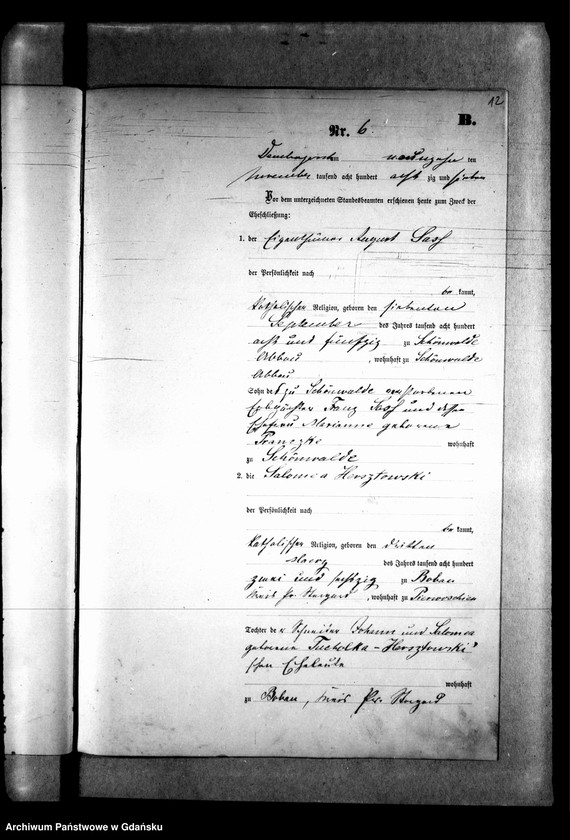 12
B.
Nr. 6.
am neunzehn ten
November tausend acht hundert acht zig und sieben
Vor dem unterzeichneten Standesbeamten erschienen heute zum Zweck der
Eheschließung:
1. der Eigenthümer August Sass
der Persönlichkeit nach
be kannt,
katholischer Religion, geboren den siebenten
September des Jahres tausend acht hundert
acht und fünfzig zu Schönwalde
Abbau , wohnhaft zu Schönwalde
Abbau
Sohn des zu Schönwalde verstorbenen
Erbpächter Franz Sass und dessen
Ehefrau Marianna geborene
wohnhaft
zu Schönwalde
2. die Salomea Hersztowski
der Persönlichkeit nach
be kannt,
katholischer Religion, geboren den dritten
Maerz des Jahres tausend acht hundert
zwei und sechzig zu Boban
Kreis Pr. Stargard , wohnhaft zu
Tochter der Schneider Johann und Salomea
geborene Tucholka - Hersztowski'
schen Eheleute
wohnhaft
zu Boban, Kreis Pr. Stargard
Archiwum Państwowe w Gdańsku